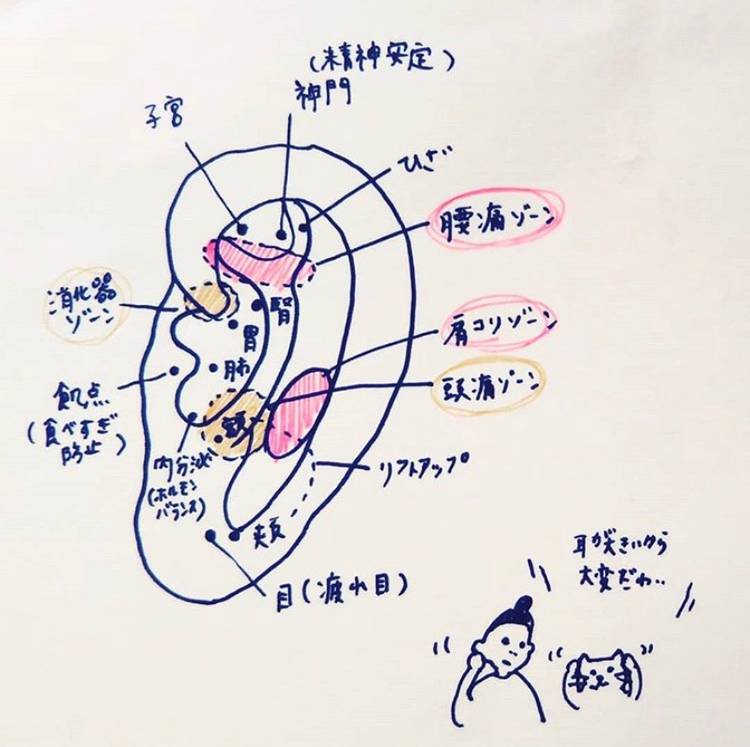 (精神安定)
神門
子宮
ひざ
腰痛ゾーン
消化器
ゾーン
腎
胃
肩コリゾーン
肺
頭痛ゾーン
飢点
(食べすぎ
防止)
頭
内分泌
(ホルモン
バランス)
リフトアップ
頬
目(疲れ目)
耳が大きいから
大変だわ..